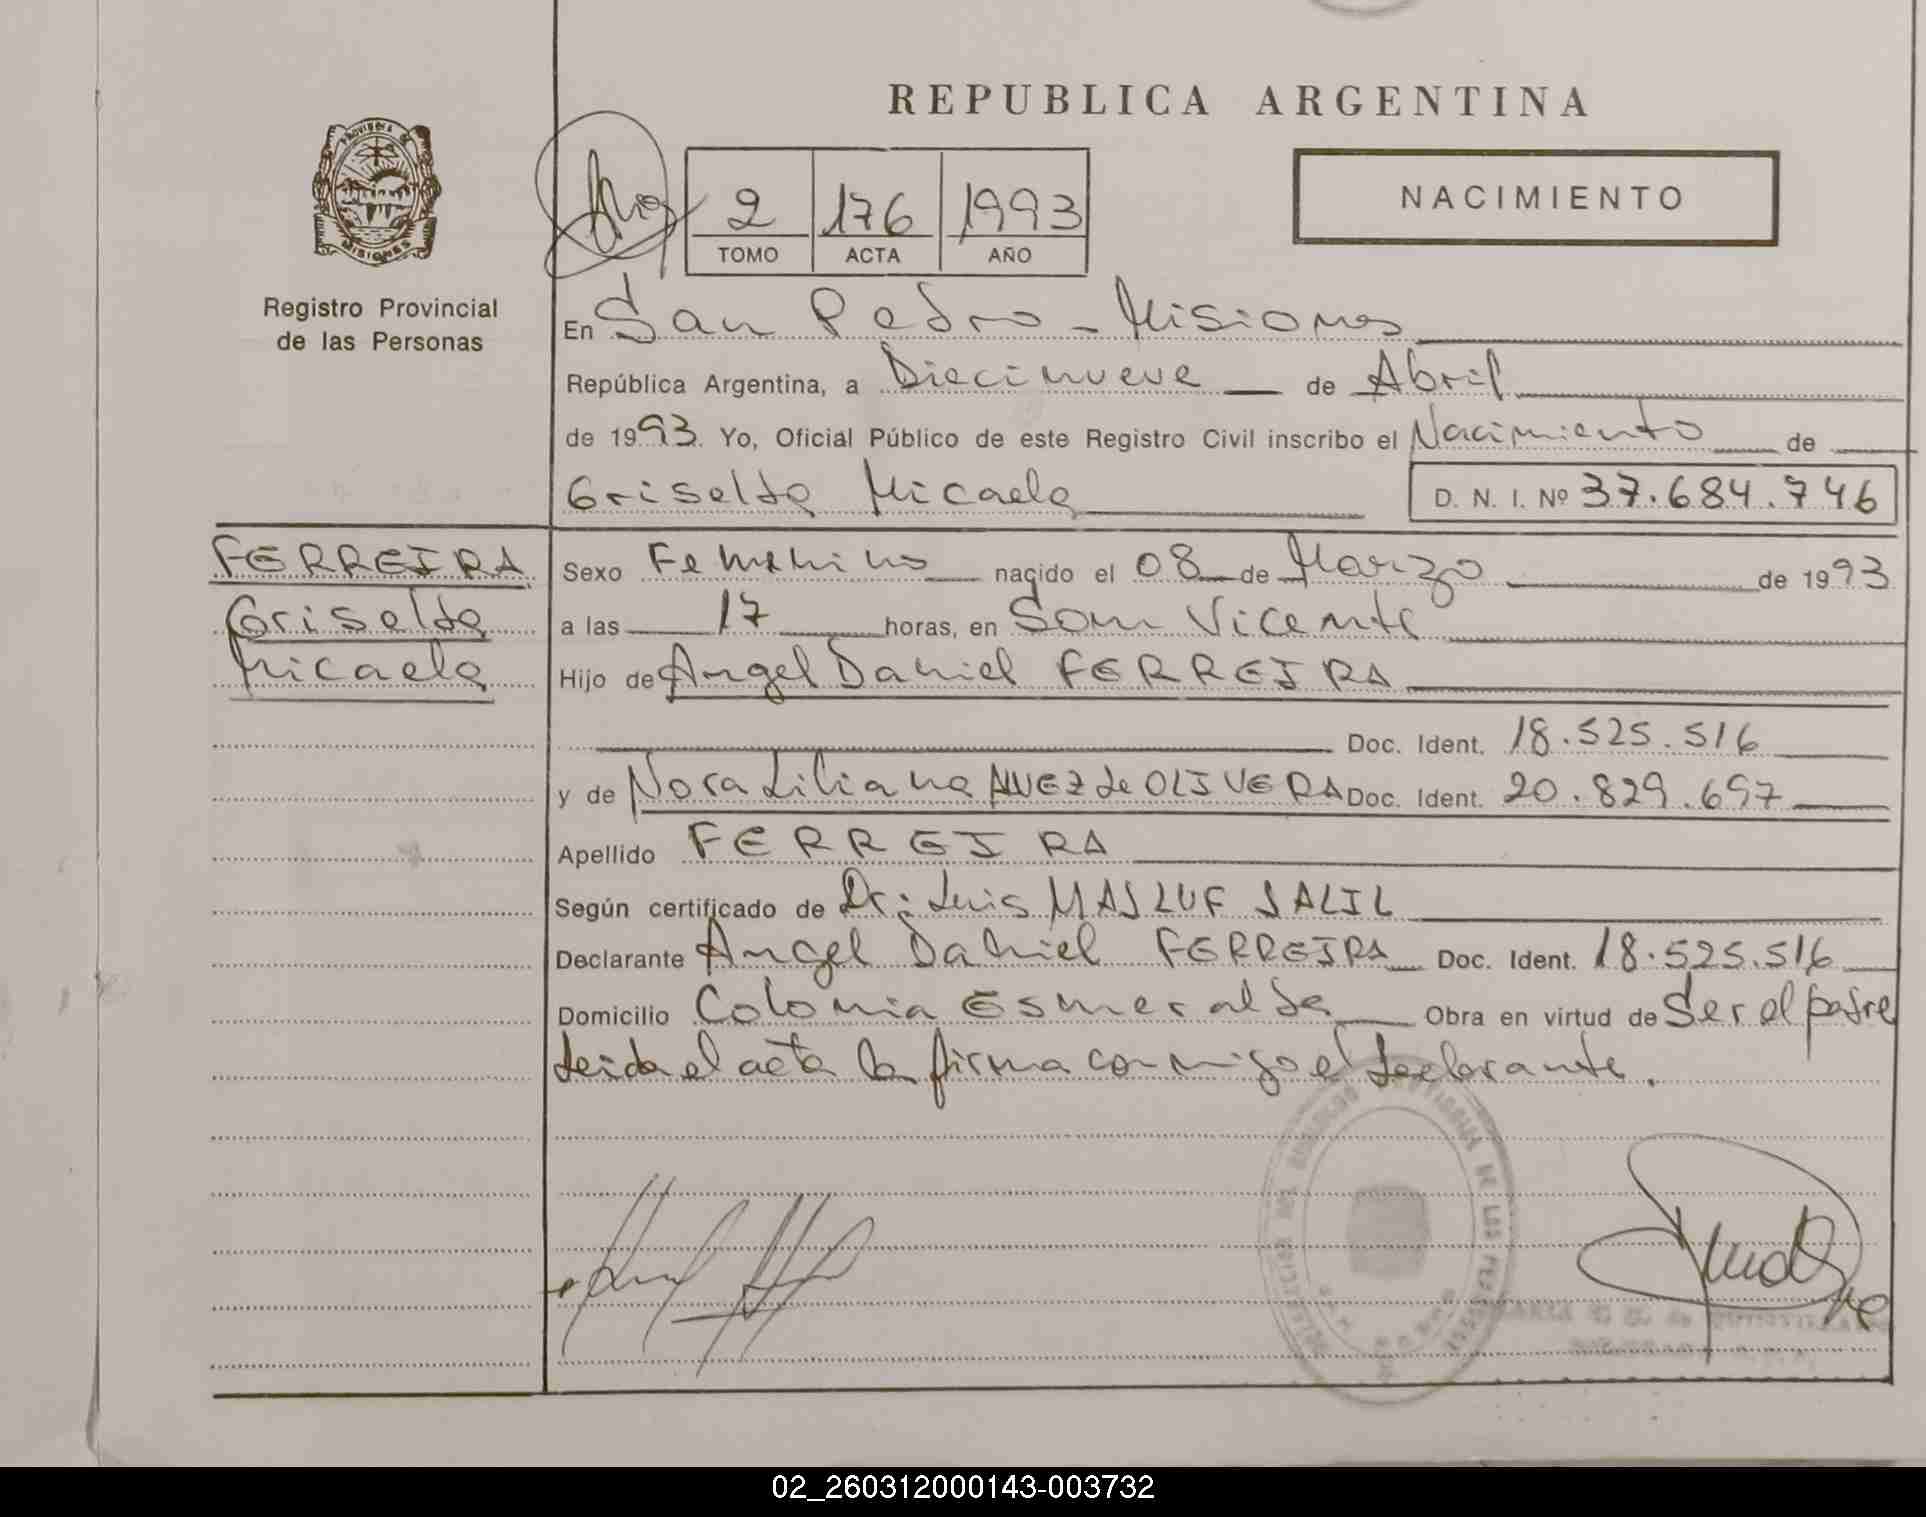 REPUBLICA ARGENTINA
PROVINCIA DE
MISIONES
2 176 1993
TOMO ACTA AÑO
NACIMIENTO
Registro Provincial
de las Personas
En San Pedro - Misiones
República Argentina, a Diecinueve de Abril
de 1993. Yo, Oficial Público de este Registro Civil inscribo el Nacimiento de
Griselda Micaela D. N. I. Nº 37.684.746
FERREIRA
Griselda
Micaela
Sexo Femenino nacido el 08 de Marzo de 1993
a las 17 horas, en San Vicente
Hijo de Angel Daniel FERREIRA
Doc. Ident. 18.525.516
y de Nora Liliana ALVEZ de OLIVERA Doc. Ident. 20.829.697
Apellido FERREIRA
Según certificado de Dr: Luis MASLUF SALIL
Declarante Angel Daniel FERREIRA Doc. Ident. 18.525.516
Domicilio Colonia Esmeralda Obra en virtud de Ser el padre
Leida el acta la firma conmigo el declarante.
DE LAS
02_260312000143-003732